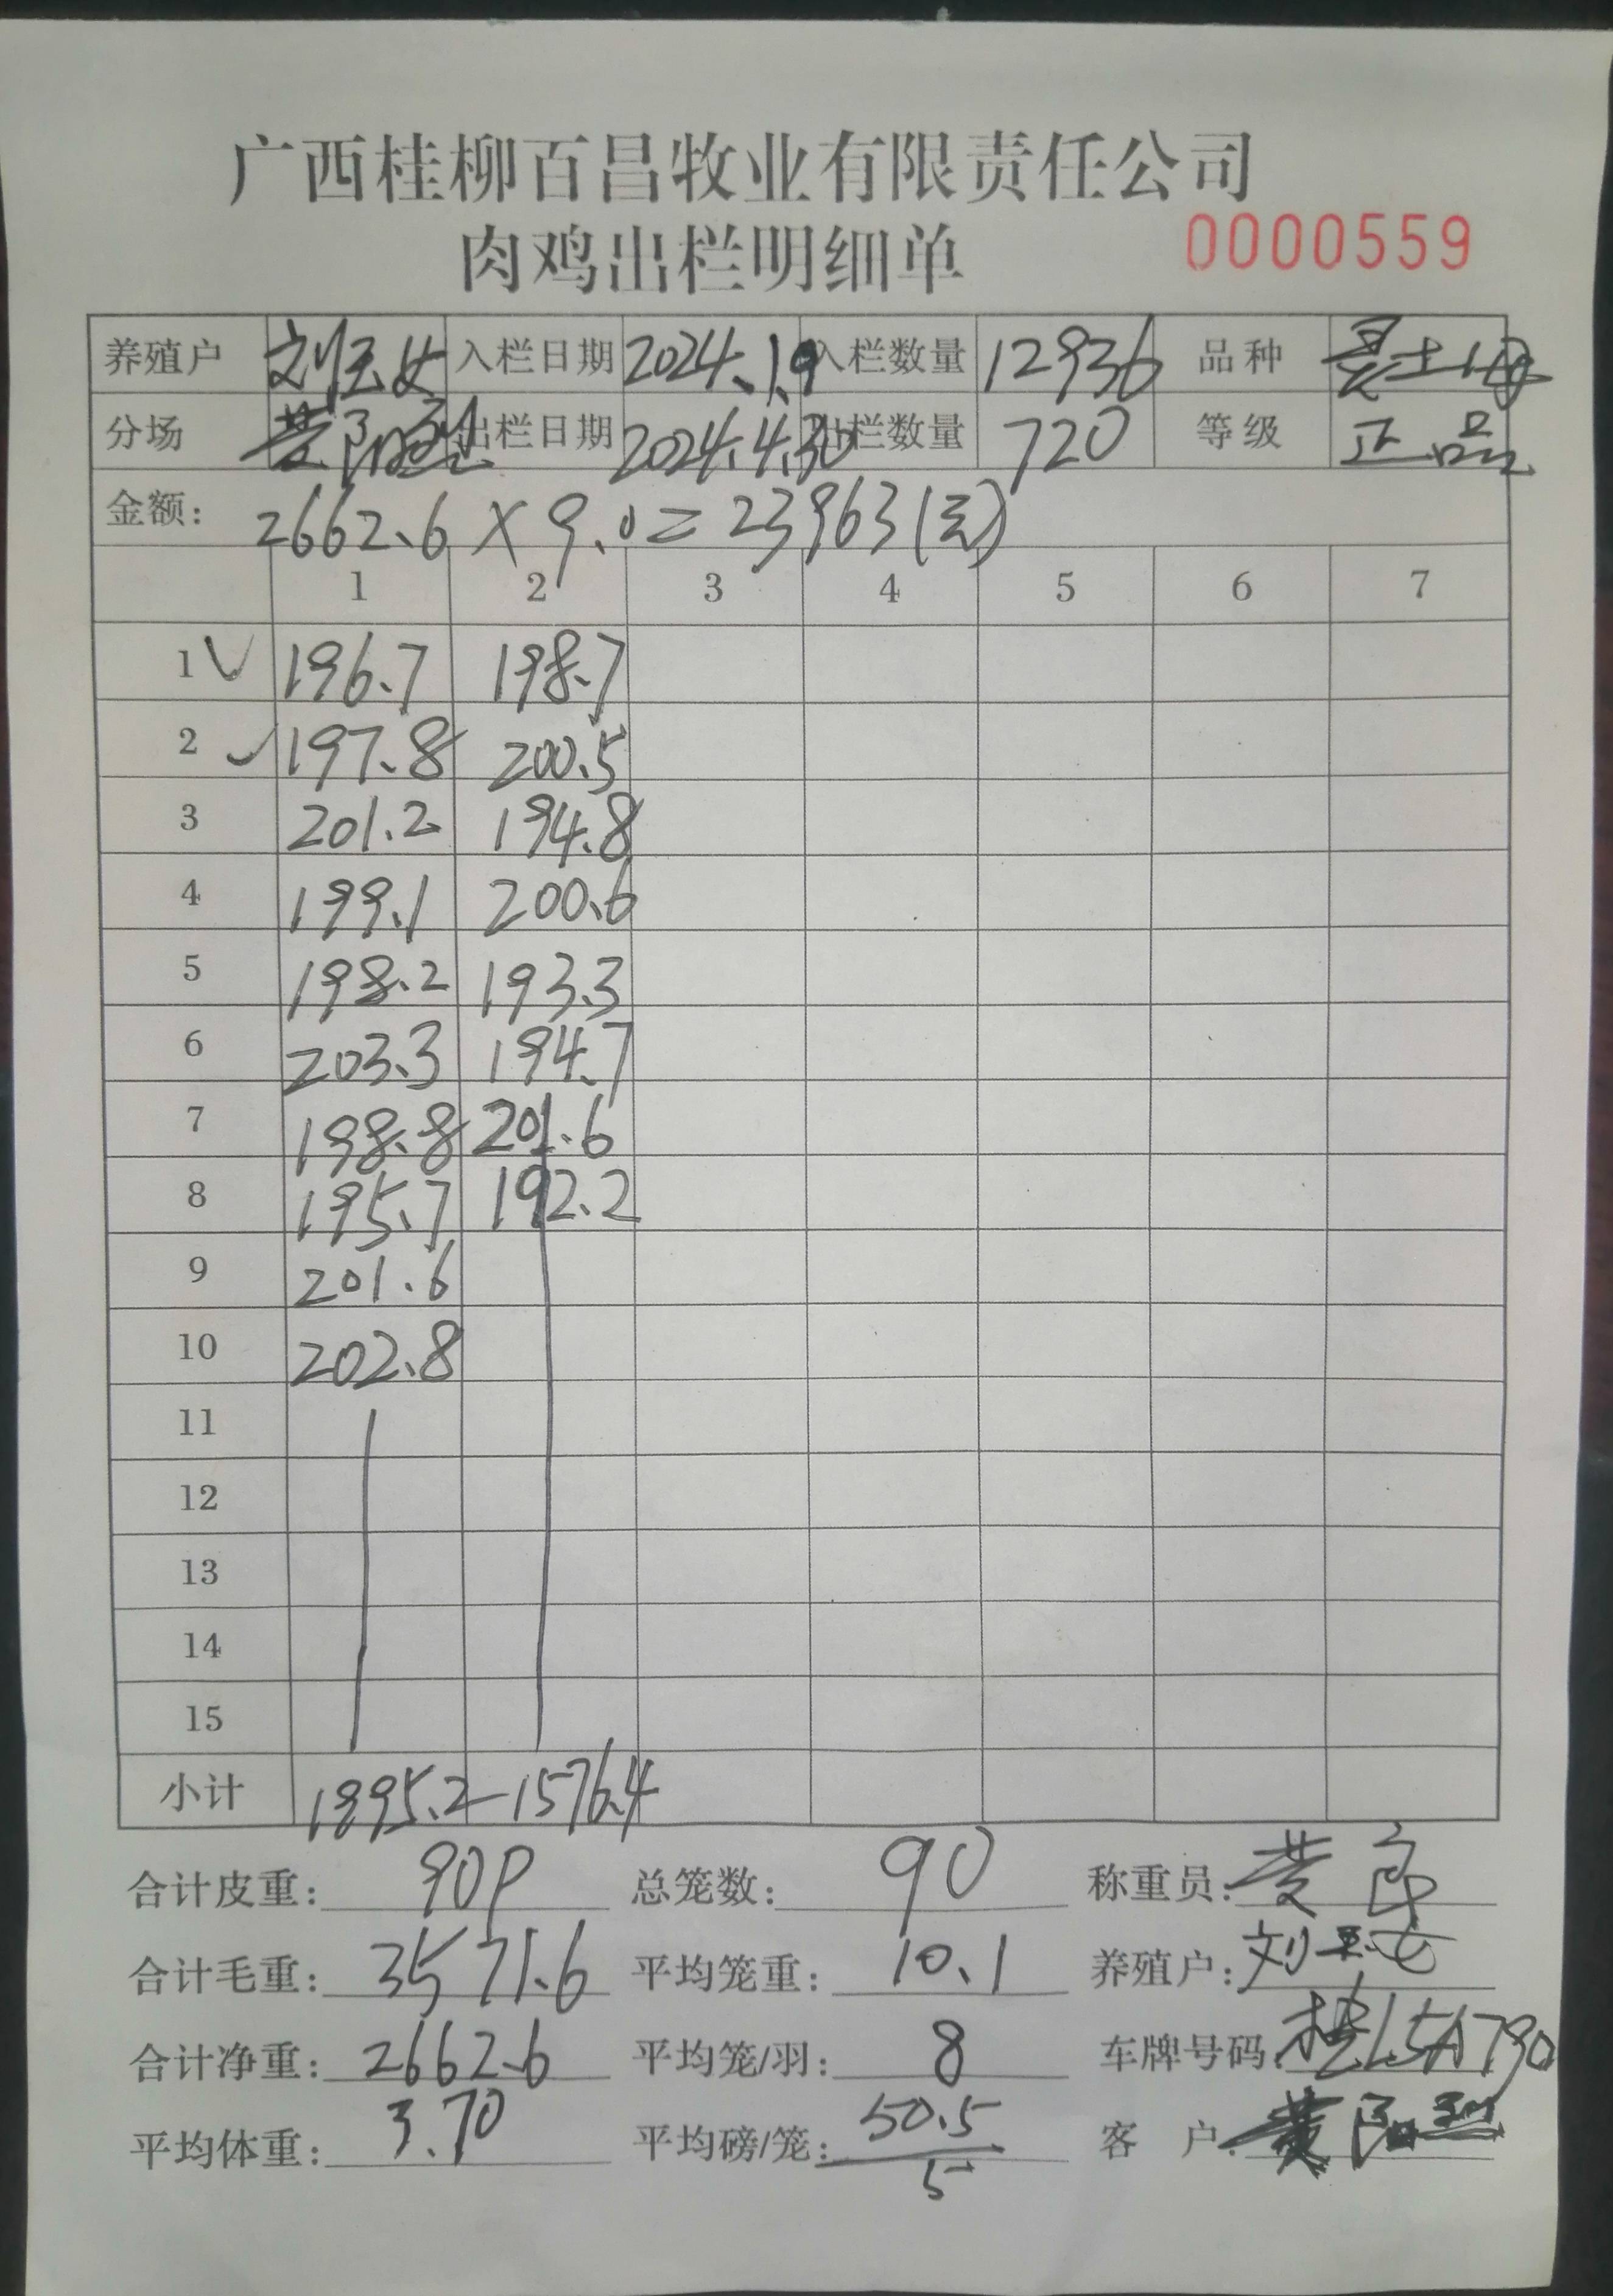 广西桂柳百昌牧业有限责任公司
肉鸡出栏明细单 0000559
养殖户 刘玉女 入栏日期 2024.1.9 入栏数量 12936 品种
分场 出栏日期 2024.4.30 出栏数量 720 等级 正品
金额: 2662.6 × 9.0 = 23963(元)
1 2 3 4 5 6 7
1 ✓ 196.7 198.7
2 ✓ 197.8 200.5
3 201.2 194.8
4 199.1 200.6
5 198.2 193.3
6 203.3 194.7
7 198.8 201.6
8 195.7 192.2
9 201.6
10 202.8
11
12
13
14
15
小计 1995.2 1576.4
合计皮重: 909 总笼数: 90 称重员:
合计毛重: 3571.6 平均笼重: 10.1 养殖户: 刘玉女
合计净重: 2662.6 平均笼/羽: 8 车牌号码: 桂L5A790
平均体重: 3.70 平均磅/笼: 50.5/5 客 户: